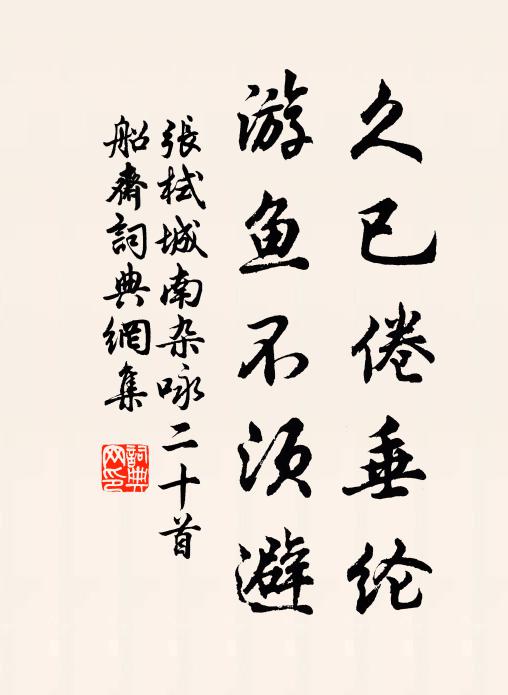 久已倦垂纶
游鱼不须避
張栻城南杂咏二十首
船齋詞典網集
詞典网印